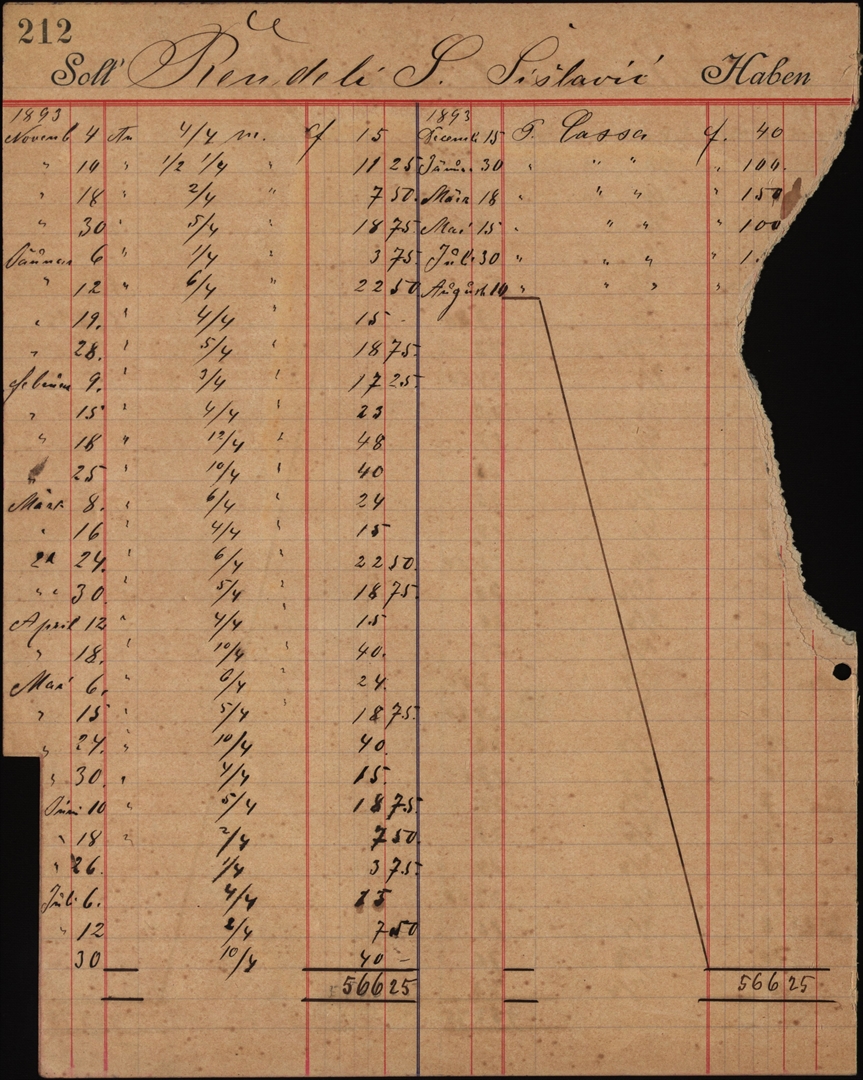 212
Soll Rendeli S. Sišlavić Haben
1893 1893
Novemb 4 An 4/4 m. f 15 Decemb 15 P. Cassa f. 40
" 10 " 1/2 1/4 " 11 25 Jänner 30 " " " " 100.
" 18 " 2/4 " 7 50 März 18 " " " 150
" 30 " 5/4 " 18 75 Mai 15 " " " " 100
Jänner 6 " 1/4 " 3 75 Juli 30 " " " " 1
" 12 " 6/4 " 22 50 August 10 " " " "
" 19. " 4/4 " 15 -
" 28. " 5/4 " 18 75
Februar 9. " 3/4 " 17 25
" 15 " 4/4 " 23
" 18 " 12/4 " 48
" 25 " 10/4 " 40
März 8. " 6/4 " 24
" 16 " 4/4 " 15
24. " 6/4 " 22 50
" 30 " 5/4 " 18 75
April 12 " 4/4 " 15
" 18. " 10/4 " 40.
Mai 6. " 6/4 " 24
" 15 " 5/4 " 18 75
" 24. " 10/4 40
" 30. " 4/4 15
Juni 10 " 5/4 18 75
" 18 " 2/4 7 50
" 26. 1/4 3 75
Juli 6. 4/4 15
" 12 2/4 7 50
30 10/4 40 -
566 25 566 25